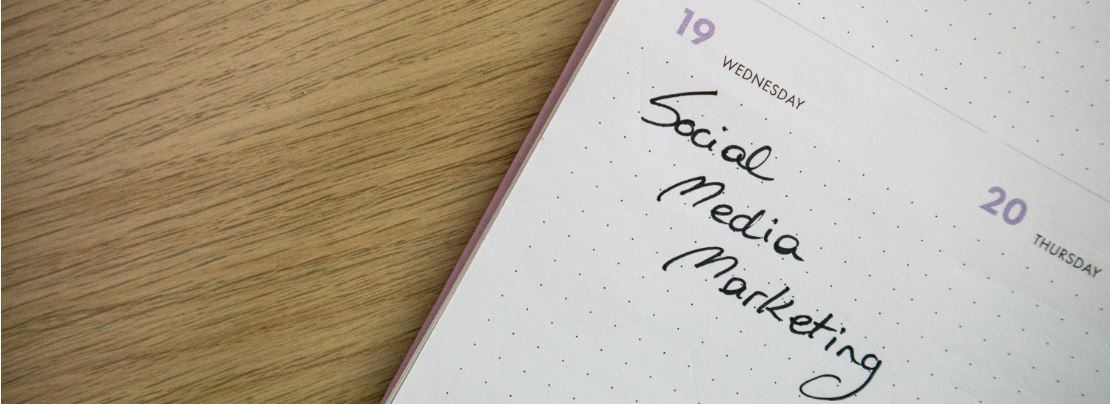 19 WEDNESDAY
Social
Media
Marketing
20 THURSDAY